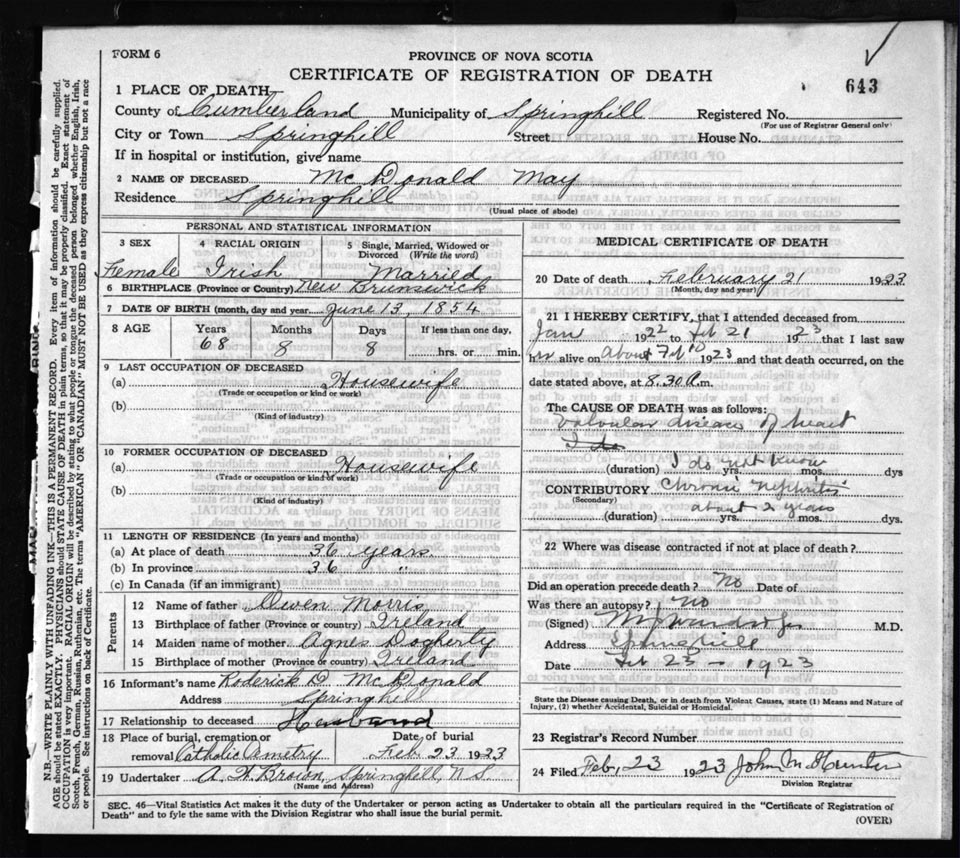 FORM 6
PROVINCE OF NOVA SCOTIA
CERTIFICATE OF REGISTRATION OF DEATH
643
1 PLACE OF DEATH—
County of Cumberland Municipality of Springhill Registered No.
(For use of Registrar General only)
City or Town Springhill Street House No.
If in hospital or institution, give name
2 NAME OF DECEASED McDonald May
Residence Springhill
(Usual place of abode)
PERSONAL AND STATISTICAL INFORMATION
3 SEX 4 RACIAL ORIGIN 5 Single, Married, Widowed or Divorced (Write the word)
Female Irish Married
6 BIRTHPLACE (Province or Country) New Brunswick
7 DATE OF BIRTH (month, day and year) June 13, 1854
8 AGE Years Months Days If less than one day,
68 8 8 hrs. or min.
9 LAST OCCUPATION OF DECEASED
(a) Housewife
(Trade or occupation or kind or work)
(b)
(Kind of industry)
10 FORMER OCCUPATION OF DECEASED
(a) Housewife
(Trade or occupation or kind of work)
(b)
(Kind of industry)
11 LENGTH OF RESIDENCE (In years and months)
(a) At place of death 36 years
(b) In province 36 "
(c) In Canada (if an immigrant)
Parents
12 Name of father Owen Morris
13 Birthplace of father (Province or country) Ireland
14 Maiden name of mother Agnes Dogherty
15 Birthplace of mother (Province or country) Ireland
16 Informant's name Roderick D. McDonald
Address Springhill
17 Relationship to deceased Husband
18 Place of burial, cremation or Date of burial
removal Catholic Cemetry Feb 23 1923
19 Undertaker A. Brown, Springhill, N S.
(Name and Address)
MEDICAL CERTIFICATE OF DEATH
20 Date of death February 21 1923
(Month, day and year)
21 I HEREBY CERTIFY, that I attended deceased from
Jan 1922 to Feb 21 1923 that I last saw
her alive on About Feb 10 1923 and that death occurred, on
date stated above, at 8.30 a.m.
The CAUSE OF DEATH was as follows:
Valvular disease of heart
I do
(duration) I do not know yrs. mos. dys
CONTRIBUTORY Chronic Nephritis
(Secondary)
about 2 years
(duration) yrs. mos. dys.
22 Where was disease contracted if not at place of death?
Did an operation precede death? No Date of
Was there an autopsy? No
(Signed) M.D.
Address Springhill
Date Feb 23 – 1923
State the Disease causing Death, or in death from Violent Causes, state (1) Means and Nature of
Injury, (2) whether Accidental, Suicidal or Homicidal.
23 Registrar's Record Number
24 Filed Feb, 23 1923 John M Hunter
Division Registrar
SEC. 46—Vital Statistics Act makes it the duty of the Undertaker or person acting as Undertaker to obtain all the particulars required in the "Certificate of Registration of
Death" and to fyle the same with the Division Registrar who shall issue the burial permit.
(OVER)
N.B.—WRITE PLAINLY WITH UNFADING INK—THIS IS A PERMANENT RECORD. Every item of information should be carefully supplied.
AGE should be stated EXACTLY. PHYSICIANS should STATE CAUSE OF DEATH in plain terms, so that it may be properly classified. Exact statement of
OCCUPATION is very important. RACIAL ORIGIN will be described by stating to what people or tongue the deceased person belonged whether English, Irish,
Scotch, French, German, Russian, Ruthenian, etc. The terms "AMERICAN" OR "CANADIAN" MUST NOT BE USED as they express citizenship but not a race
or people. See instructions on back of Certificate.